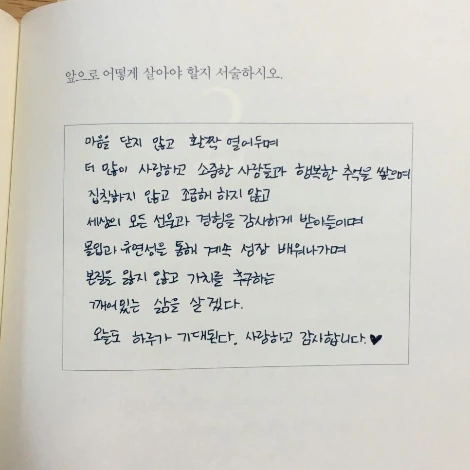 앞으로 어떻게 살아야 할지 서술하시오.
마음을 닫지 않고 활짝 열어두며
더 많이 사랑하고 소중한 사람들과 행복한 추억을 쌓으며
집착하지 않고 조급해 하지 않고
세상의 모든 선물과 경험을 감사하게 받아들이며
몰입과 유연성을 통해 계속 성장 배워나가며
본질을 잃지 않고 가치를 추구하는
깨어있는 삶을 살겠다.
오늘도 하루가 기대된다. 사랑하고 감사합니다.♥